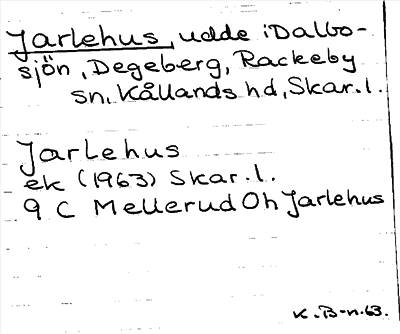 Jarlehus, udde i Dalbo-
sjön, Degeberg, Rackeby
sn, Kållands hd, Skar. l.
Jarlehus
ek (1963) Skar. l.
9 C Mellerud Öh Jarlehus
K. B-n-63.